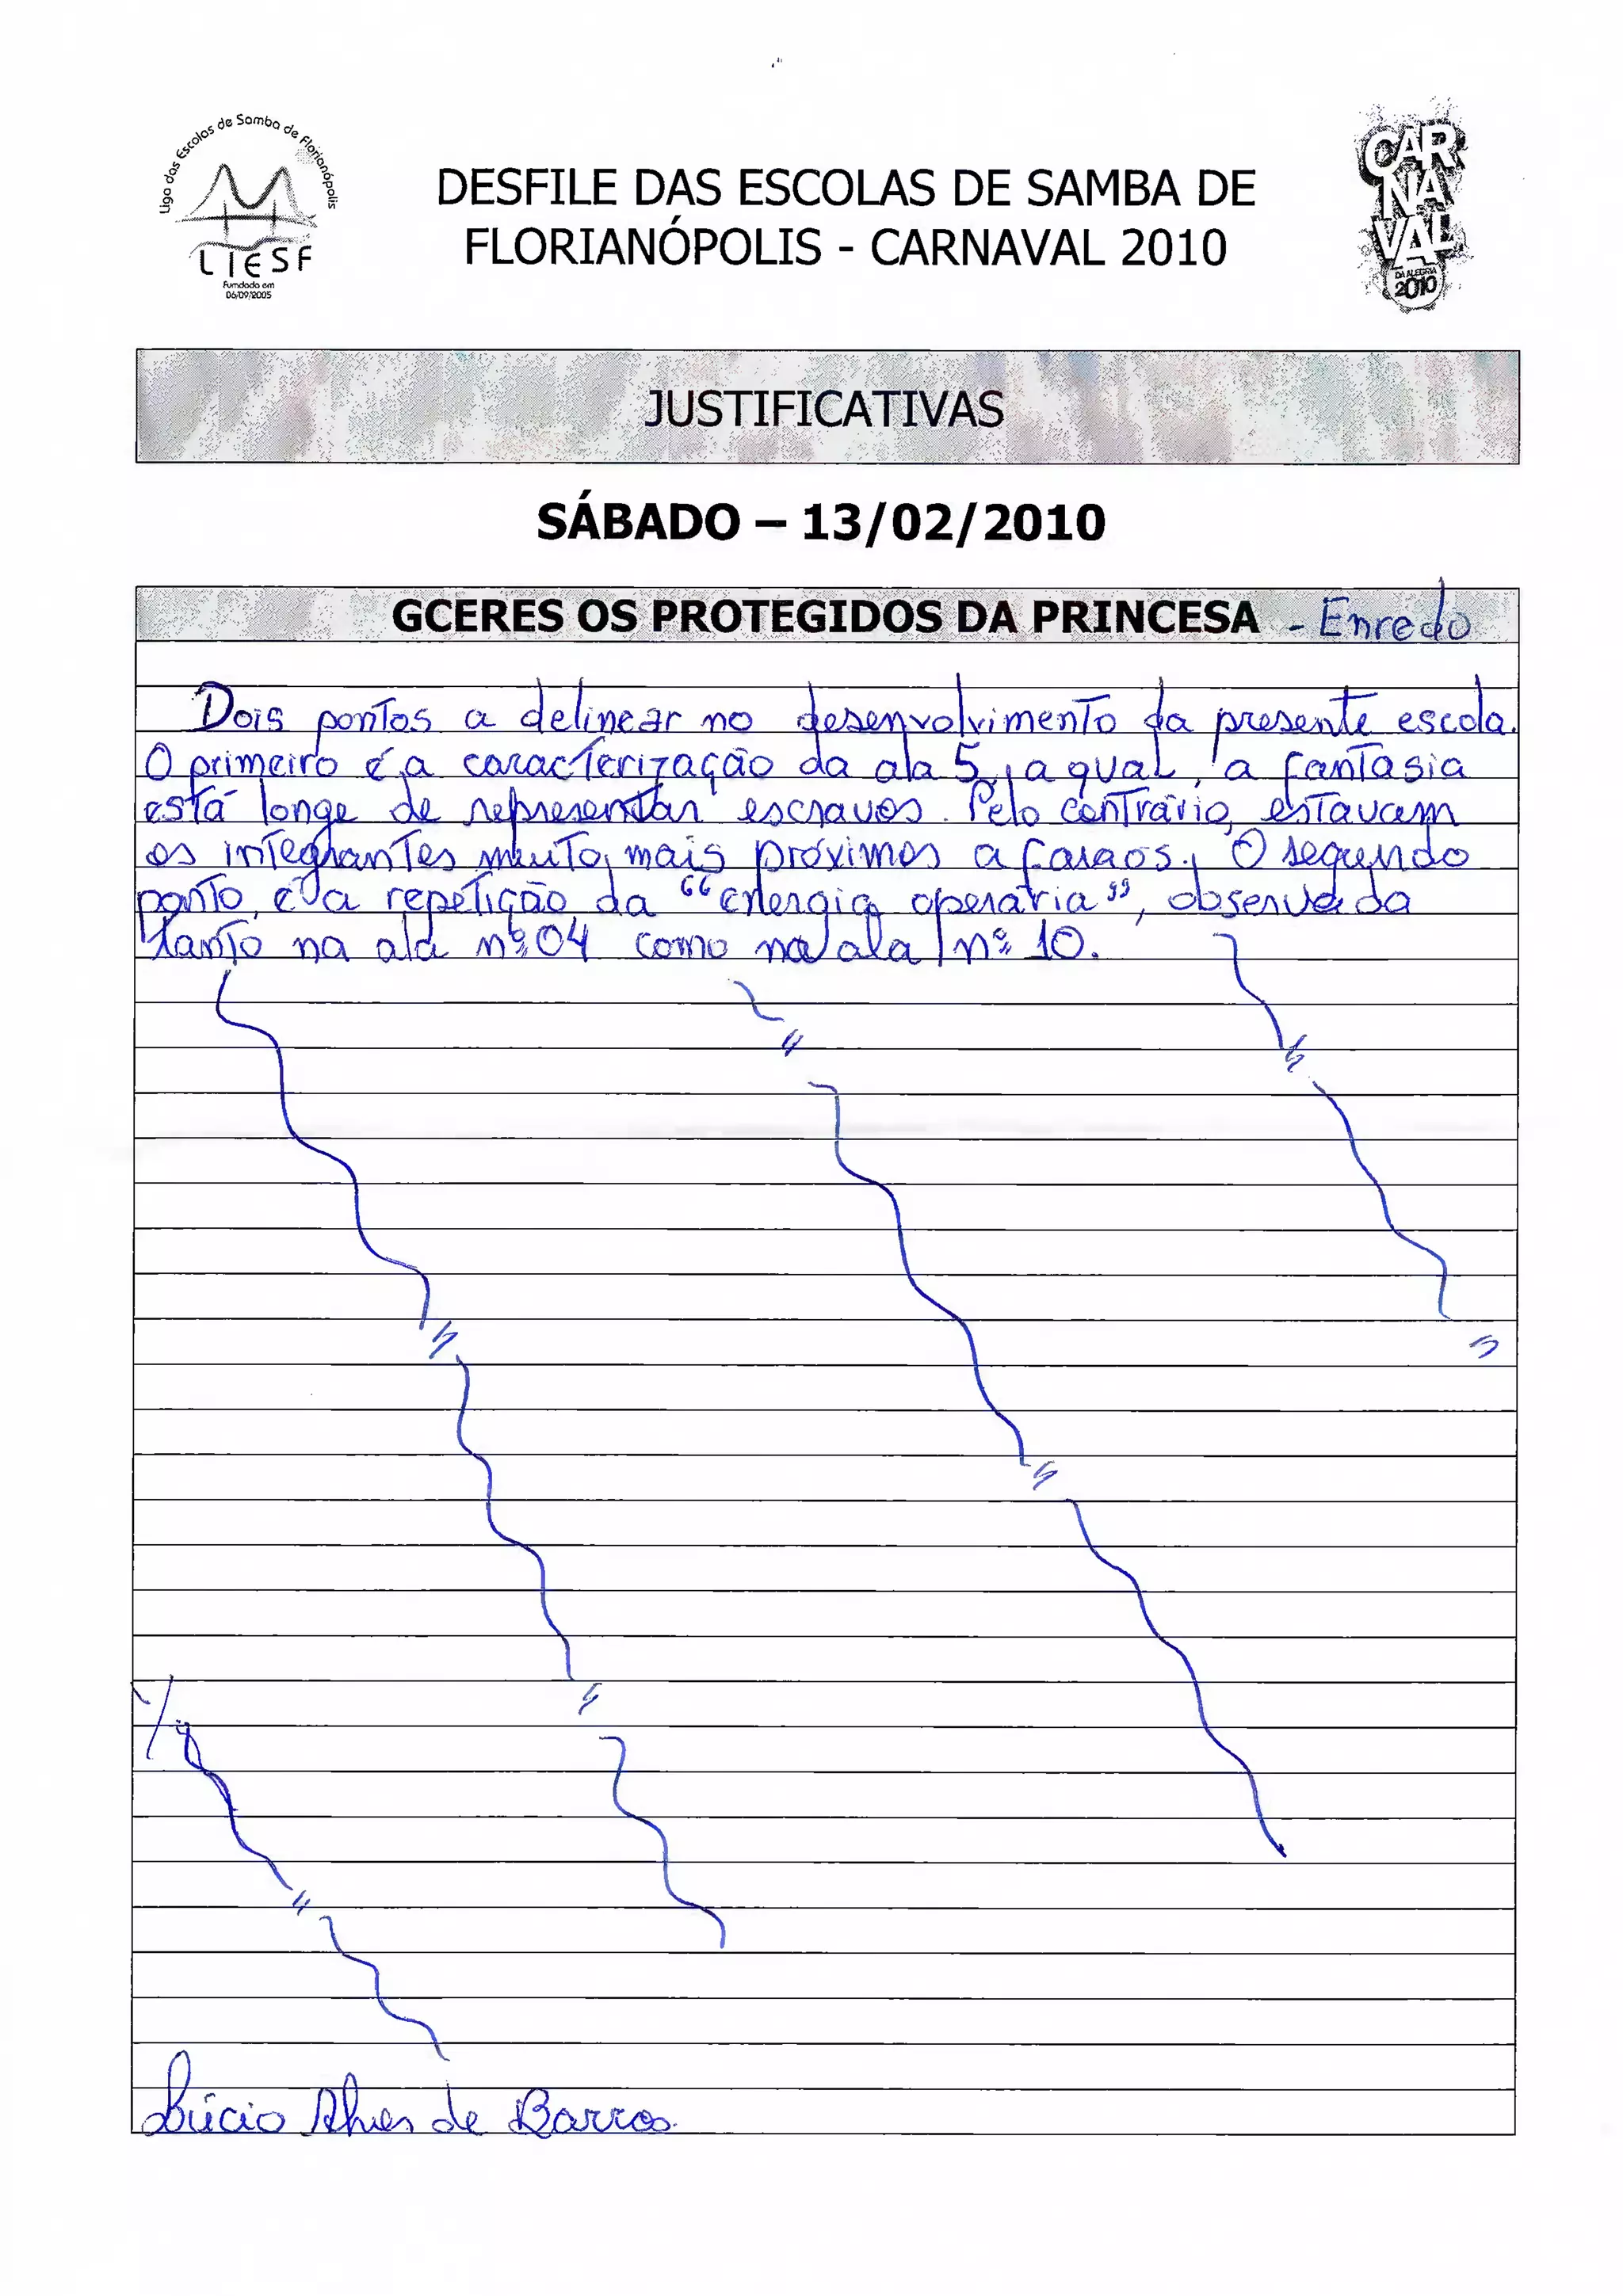 Liga das Escolas de Samba de Florianópolis
LIESF
Fundada em
06/09/2005
DESFILE DAS ESCOLAS DE SAMBA DE
FLORIANÓPOLIS - CARNAVAL 2010
CAR
NA
VAL
DA ALEGRIA
2010
JUSTIFICATIVAS
SÁBADO – 13/02/2010
GCERES OS PROTEGIDOS DA PRINCESA - Enredo
Dois pontos a delinear no desenvolvimento da presente escola.
O primeiro é a caracterização da ala 5, a qual, a fantasia
está longe de representar escravos. Pelo contrário, estavam
os integrantes muito mais próximos a faraós. O segundo
ponto, é a repetição da "energia operária", observada
tanto na ala nº 04 como na ala nº 10.
Lúcio Alves de Barros